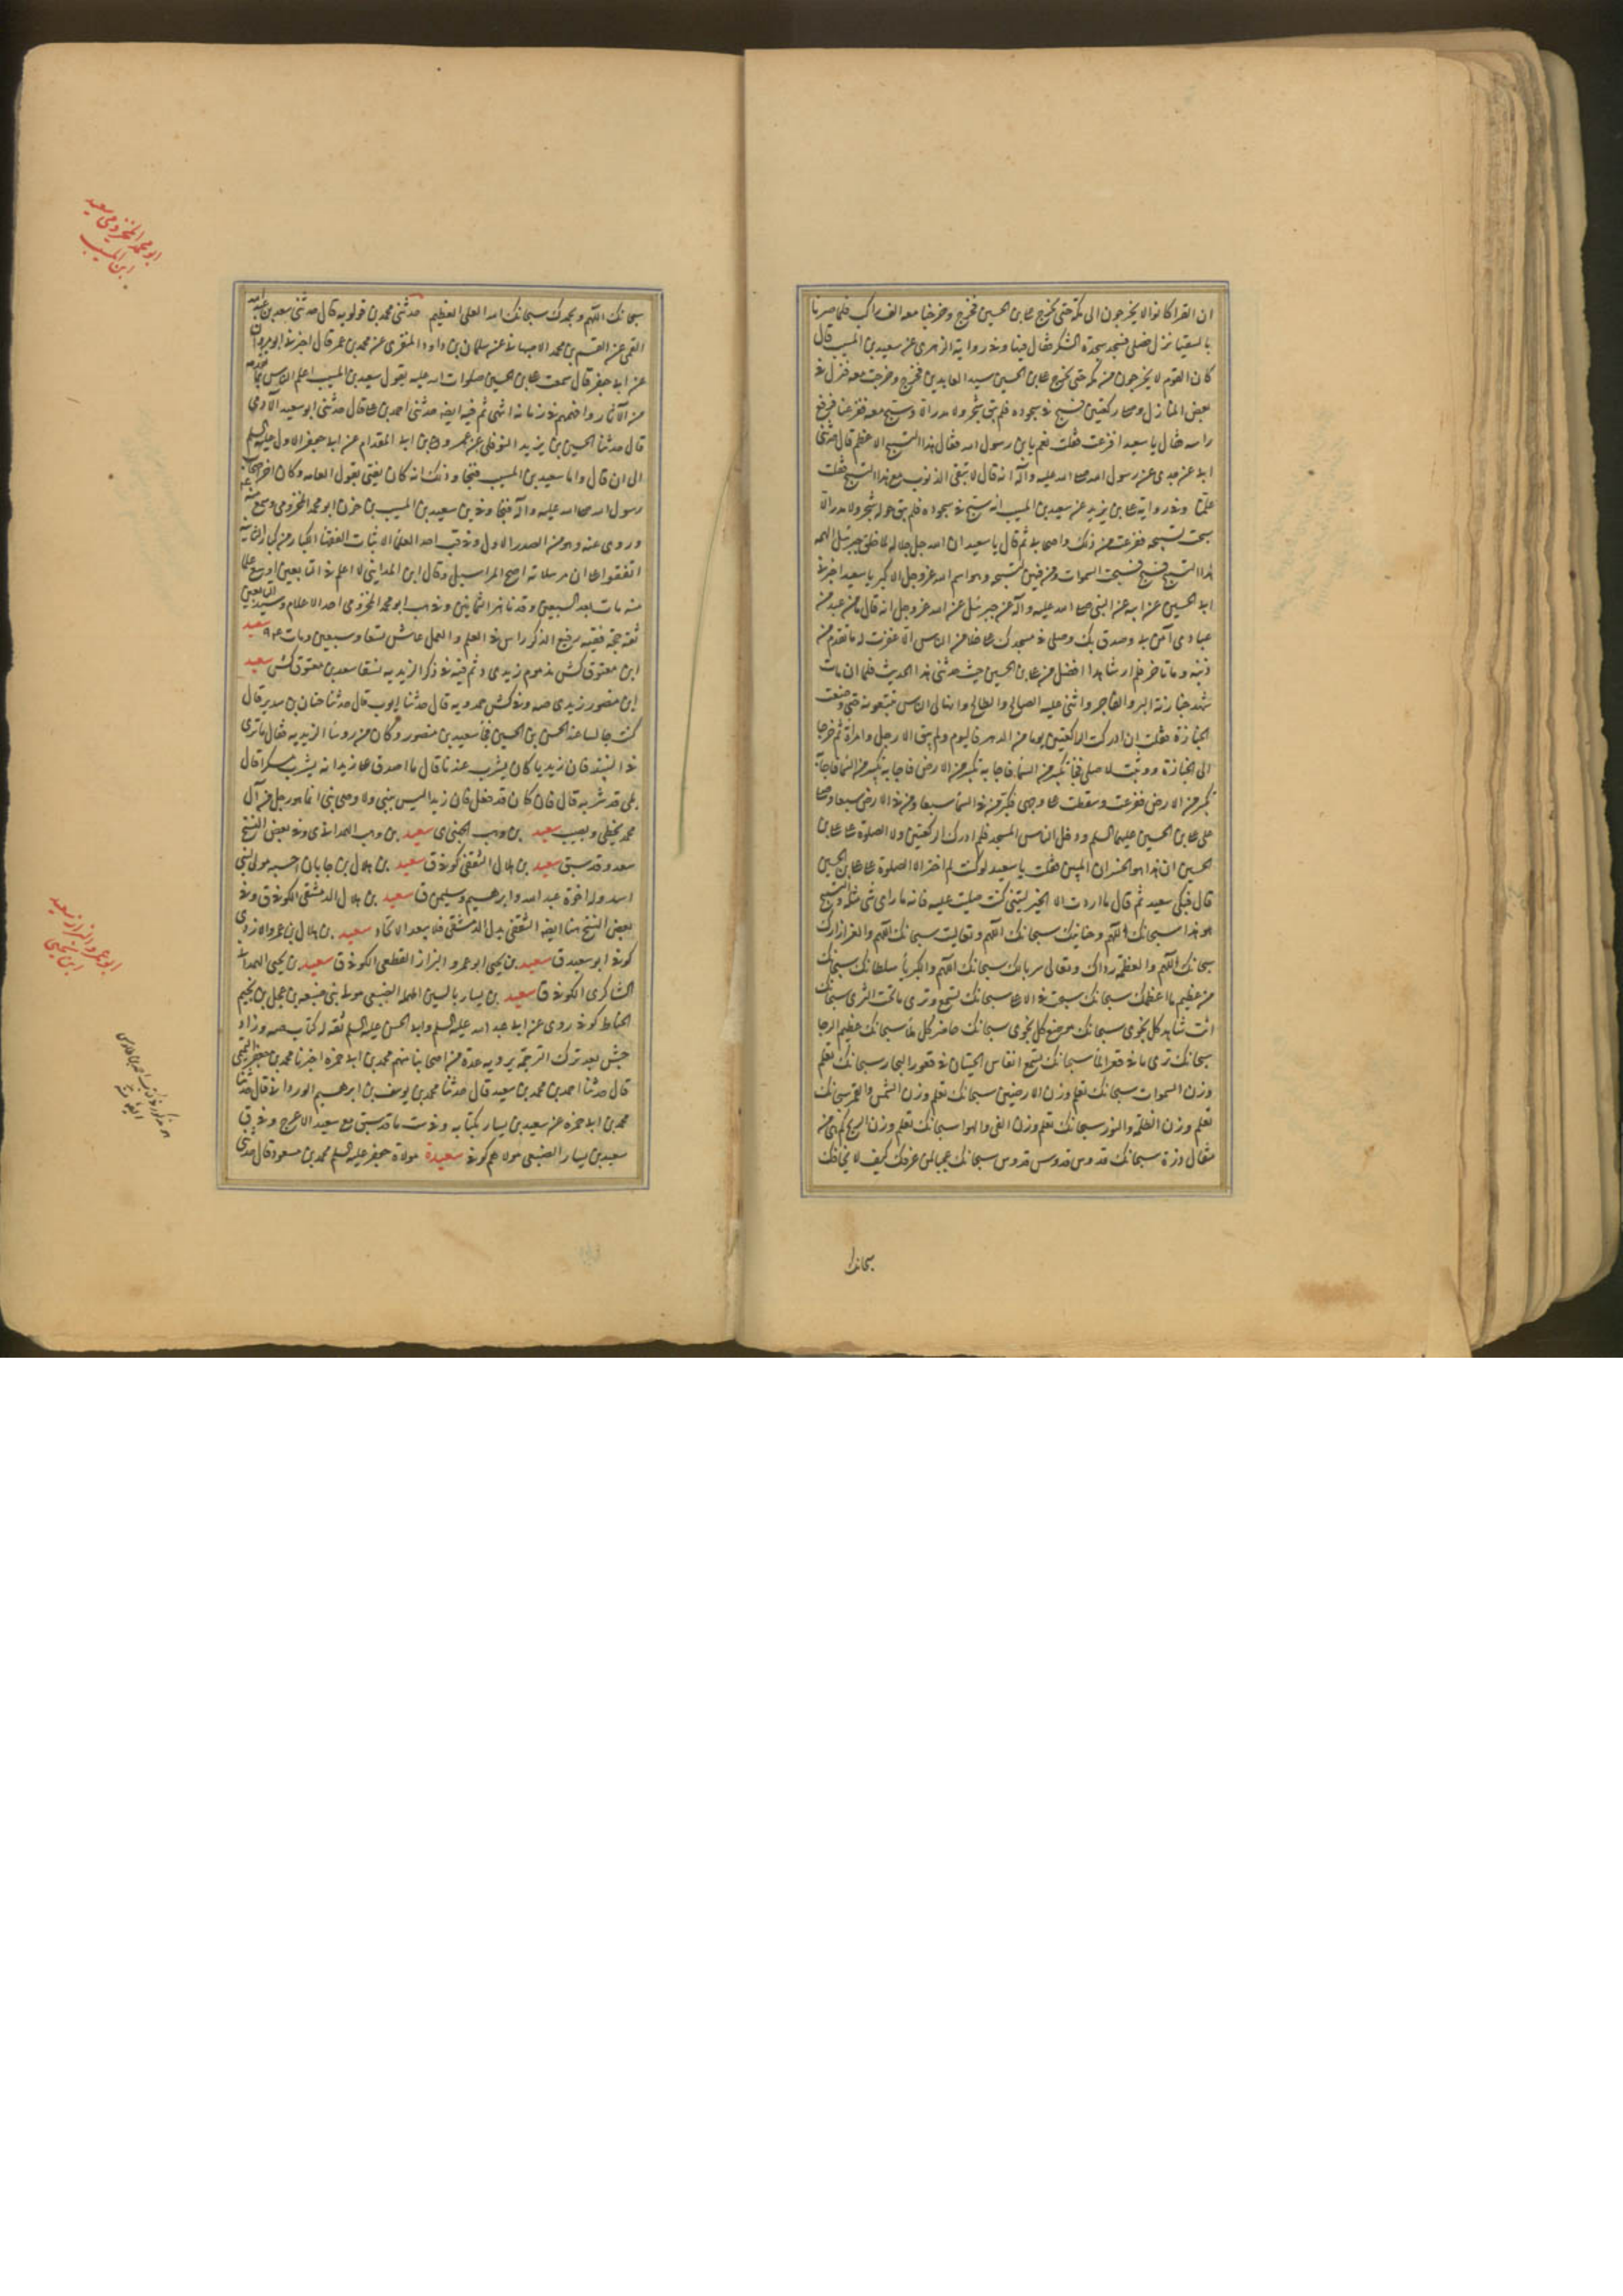 ان القرا كانوا لا يخرجون الى مكة حتى يخرج على بن الحسين فخرج وخرجنا معه الف راكب فلما صرنا
بالسقيا نزل فصلى فسجد سجدة الشكر فقال فيها وفى رواية الزهرى عن سعيد بن المسيب قال
كان القوم لا يخرجون من مكة حتى يخرج على بن الحسين سيد العابدين فخرج وخرجت معه فنزل فى
بعض المنازل وصلى ركعتين فسبح فى سجوده فلم يبق شجر ولا مدر الا وسبح معه ففزعنا فرفع
راسه فقال يا سعيد افزعت فقلت نعم يا بن رسول الله فقال هذا التسبيح الاعظم قال حدثنى
ابى عن جدى عن رسول الله صلى الله عليه وآله انه قال لا تبقى الذنوب مع هذا التسبيح فقلت
علمنا وفى رواية على بن يزيد عن سعيد بن المسيب انه سبح فى سجوده فلم يبق حوله شجر ولا مدر الا
سبحت بتسبيحه ففزعت من ذلك واصحابى ثم قال يا سعيد ان الله جل جلاله لما خلق جبرئيل الهمه
هذا التسبيح فسبح فسبحت السموات ومن فيهن لتسبيحه وهو اسم الله عز وجل الاكبر يا سعيد اخبرنى
ابى الحسين عن ابيه عن النبى صلى الله عليه وآله عن جبرئيل عن الله عز وجل انه قال ما من عبد من
عبادى آمن بى وصدق بك وصلى فى مسجدك على خلا من الناس الا غفرت له ما تقدم من
ذنبه وما تاخر فلم ار شاهدا افضل من على بن الحسين حيث حدثنى بهذا الحديث فلما ان مات
شهد جنازته البر والفاجر واثنى عليه الصالح والطالح وانهال الناس يتبعونه حتى وضعت
الجنازة فقلت ان ادركت الركعتين يوما من الدهر فاليوم ولم يبق الا رجل وامرأة ثم خرجا
الى الجنازة ووثبت لاصلى فجا تكبير من السما فاجابه تكبير من الارض فاجابه تكبير من السما فاجابه
تكبير من الارض ففزعت وسقطت على وجهى فكبر من فى السما سبعا ومن فى الارض سبعا وصلى
على على بن الحسين عليهما السلم ودخل الناس المسجد فلم ادرك الركعتين ولا الصلوة على على بن
الحسين ان هذا لهو الخسران المبين فقلت يا سعيد لو كنت لم اختر الا الصلوة على على بن الحسين
قال فبكى سعيد ثم قال ما اردت الا الخير ليتنى كنت صليت عليه فانه ما راى شى مثله والتسبيح
هو هذا سبحانك اللهم وحنانيك سبحانك اللهم وتعاليت سبحانك اللهم والعز ازارك
سبحانك اللهم والعظمة رداك وتعالى سربالك سبحانك اللهم والكبريا سلطانك سبحانك
من عظيم ما اعظمك سبحانك سبحت فى الاعلى سبحانك تسمع وترى ما تحت الثرى سبحانك
انت شاهد كل نجوى سبحانك موضع كل شكوى سبحانك حاضر كل ملأ سبحانك عظيم الرجا
سبحانك ترى ما فى قعر الما سبحانك تسمع انفاس الحيتان فى قعور البحار سبحانك تعلم
وزن السموات سبحانك تعلم وزن الارضين سبحانك تعلم وزن الشمس والقمر سبحانك
تعلم وزن الظلمة والنور سبحانك تعلم وزن الفى والهوا سبحانك تعلم وزن الريح كم هى من
مثقال ذرة سبحانك قدوس قدوس قدوس سبحانك عجبا لمن عرفك كيف لا يخافك
سبحانك
سبحانك اللهم وبحمدك سبحانك الله العلى العظيم حدثنى محمد بن قولويه قال حدثنى سعد بن عبد الله
القمى عن القسم بن محمد الاصبهانى عن سلمان بن داود المنقرى عن محمد بن عمر قال اخبرنى ابو مروان
عن ابى جعفر قال سمعت على بن الحسين صلوات الله عليه يقول سعيد بن المسيب اعلم الناس بما تقدمه
من الآثار وافهمهم فى زمانه انتهى ثم فيه ايضا حدثنى احمد بن على قال حدثنى ابو سعيد الآدمى
قال حدثنا الحسين بن يزيد النوفلى عن عمرو بن ابى المقدام عن ابى جعفر الاول عليه السلم
الى ان قال واما سعيد بن المسيب فنجا وذلك انه كان يفتى بقول العامه وكان اخر اصحاب
رسول الله صلى الله عليه وآله فنجا وفى سعيد بن المسيب بن حزن ابو محمد المخزومى وسمع منه
وروى عنه وهو من الصدر الاول وفى قب احد العلما الاثبات الفقها الكبار من كبار الثانية
اتفقوا على ان مرسلاته اصح المراسيل وقال ابن المدينى لا اعلم فى التابعين اوسع علما
منه مات بعد التسعين وقد ناهز الثمانين وفى هب ابو محمد المخزومى احد الاعلام وسيد التابعين
ثقة حجة فقيه رفيع الذكر راس فى العلم والعمل عاش تسعا وسبعين ومات ٩٤ سعيد
ابن معتوق كش مذموم زيدى ثم فيه فى ذكر الزيديه لسقا سعد بن معتوق كش سعيد
ابن منصور زيدى صه وفى كش حمدويه قال حدثنا ايوب قال حدثنا حنان بن سدير قال
كنت جالسا عند الحسن بن الحسين فجأ سعيد بن منصور وكان من روسا الزيديه فقال ما ترى
فى النبيذ فان زيديا كان يشربه عندنا قال ما اصدق على زيد انه يشرب مسكرا قال
بلى قد شربه قال فان كان قد فعل فان زيدا ليس بنبى ولا وصى نبى انما هو رجل من آل
محمد يخطى ويصيب سعيد بن وهب الجهنى ى سعيد بن وهب الهمدانى ى وفى بعض النسخ
سعد وقد سبق سعيد بن هلال الثقفى كوفى ق سعيد بن هلال بن جابان احسبه مولى بنى
اسد وله اخوة عبد الله وابرهيم وسليمن ق سعيد بن هلال الدمشقى الكوفى ق وفى
بعض النسخ هنا ايضا الثقفى بدل الدمشقى فلا يبعد الاتحاد سعيد بن هلال بن عمرو الازدى
كوفى ابو سعيد ق سعيد بن يحيى ابو عمرو البزاز القطعى الكوفى ق سعيد بن يحيى الهمدانى
الشاكرى الكوفى ق سعيد بن يسار بالسين المهملة الضبيعى مولى بنى ضبيعه بن عجل بن لجيم
الحناط كوفى روى عن ابى عبد الله عليه السلم وابى الحسن عليه السلم ثقه له كتاب صه وزاد
جش بعد ترك الترجمة يرويه عدة من اصحابنا منهم محمد بن ابى حمزه اخبرنا محمد بن جعفر التميمى
قال حدثنا احمد بن محمد بن سعيد قال حدثنا محمد بن يوسف بن ابرهيم الوردانى قال حدثنا
محمد بن ابى حمزه عن سعيد بن يسار بكتابه وفى ست ما قد سبق مع سعيد الاعرج وفى ق
سعيد بن يسار الضبيعى مولاهم كوفى سعيدة مولاة جعفر عليه السلم محمد بن مسعود قال حدثنى
ابو محمد المخزومى سعيد
ابن المسيب
ابو عمرو البزاز سعيد
ابن يحيى